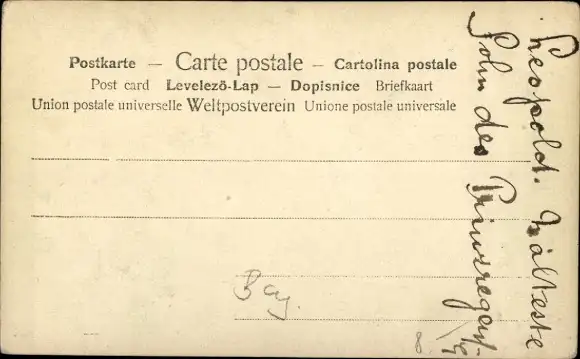 Postkarte — Carte postale — Cartolina postale
Post card Levelező-Lap — Dopisnice Briefkaart
Union postale universelle Weltpostverein Unione postale universale
Leopold. älteste
Sohn des Prinzregent.
Bay.
8.